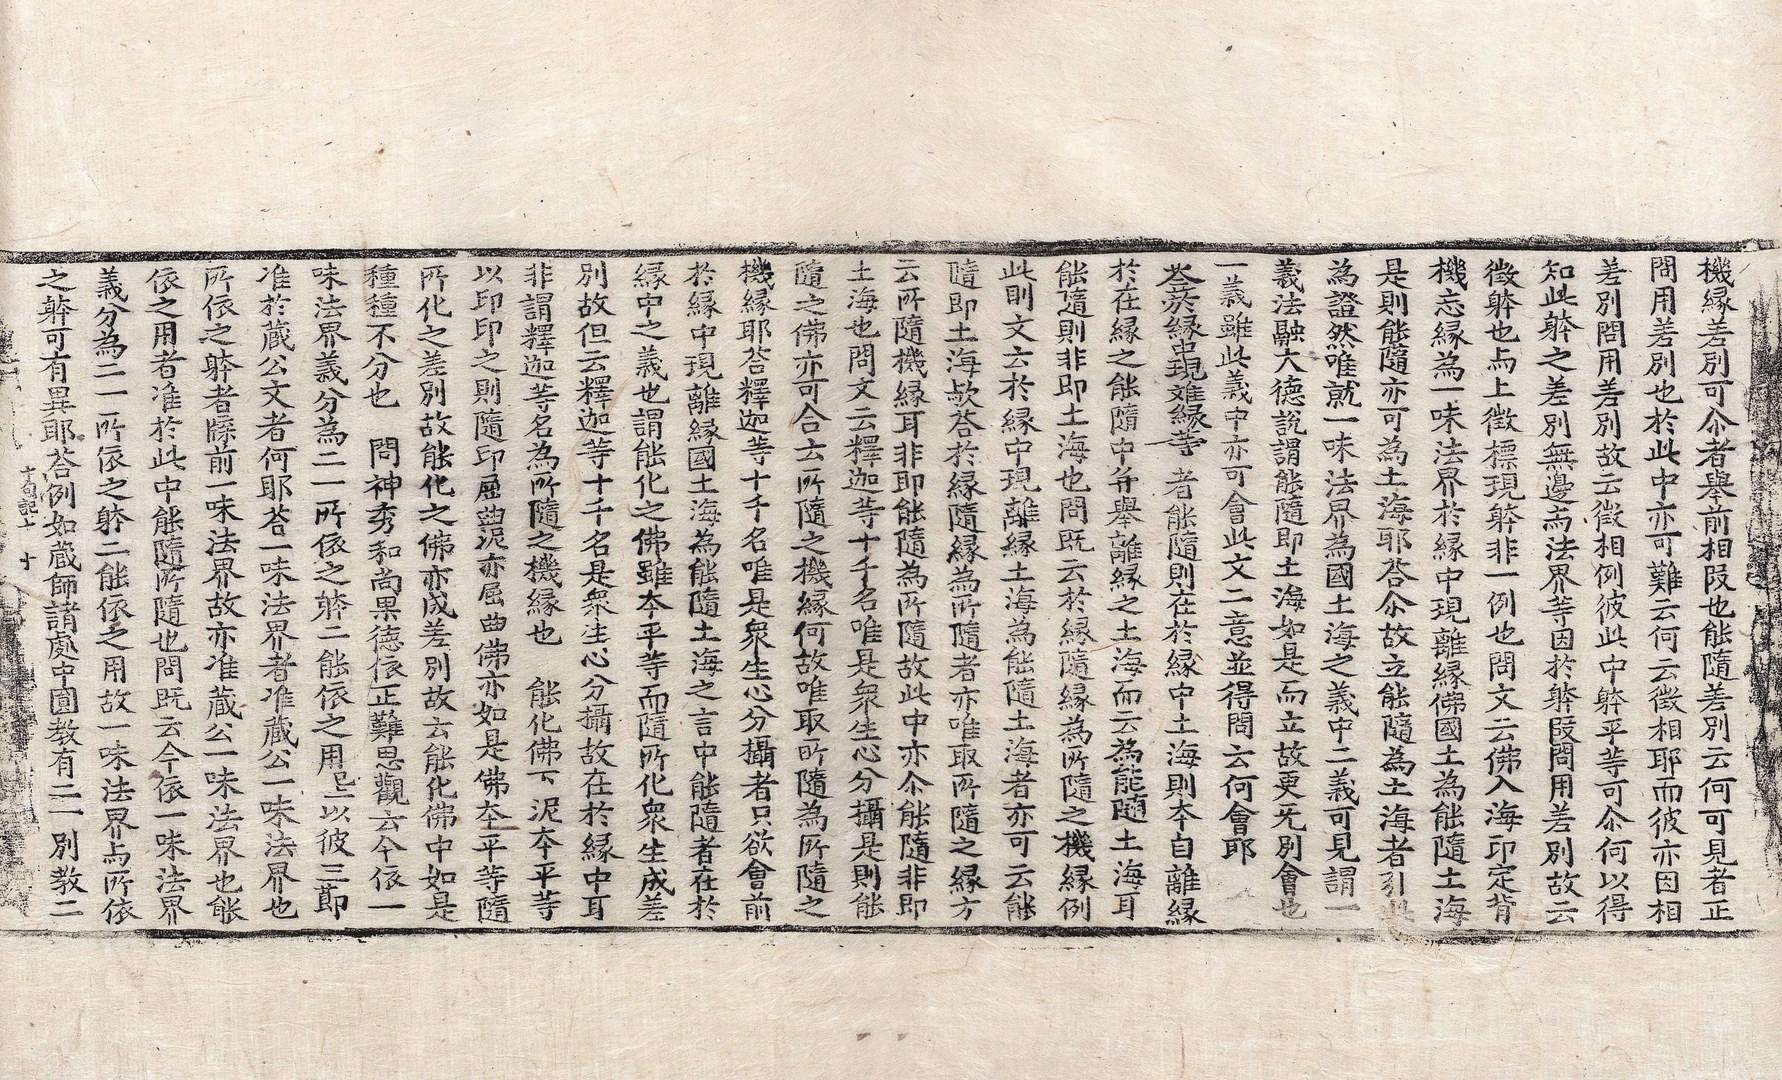 機緣差別可尒者舉前相叚也能隨差別云何可見者正
問用差別也於此中亦可難云何云徵相耶而彼亦因相
差別問用差別故云徵相例彼此中躰平等可尒何以得
知此躰之差別無邊而法界等因於躰叚問用差別故云
徵躰也而上徵標現躰非一例也問文云佛入海印定背
機忘緣為一味法界於緣中現離緣佛國土為能隨土海
是則能隨亦可為土海耶荅尒故立能隨為土海者引此
為證然唯就一味法界為國土海之義中二義可見謂一
義法融大德說謂能隨即土海如是而立故更无別會也
一義雖此義中亦可會此文二意並得問云何會耶
荅於緣中現離緣等 者能隨則在於緣中土海則本自離緣
於在緣之能隨中幷舉離緣之土海而云為能隨土海耳
能隨則非即土海也問旣云於緣隨緣為所隨之機緣例
此則文云於緣中現離緣土海為能隨土海者亦可云能
隨即土海歟荅於緣隨緣為所隨者亦唯取所隨之緣方
云所隨機緣耳非即能隨為所隨故此中亦尒能隨非即
土海也問文云釋迦等十千名唯是衆生心分攝是則能
隨之佛亦可合云所隨之機緣何故唯取所隨為所隨之
機緣耶荅釋迦等十千名唯是衆生心分攝者只欲會前
於緣中現離緣國土海為能隨土海之言中能隨者在於
緣中之義也謂能化之佛雖本平等而隨所化衆生成差
別故但云釋迦等十千名是衆生心分攝故在於緣中耳
非謂釋迦等名為所隨之機緣也 能化佛下泥本平等
以印印之則隨印屈曲泥亦屈曲佛亦如是佛本平等隨
所化之差別故能化之佛亦成差別故云能化佛中如是
種種不分也 問神秀和尚果德依正難思觀云今依一
味法界義分為二一所依之躰二能依之用是以彼三節
准於藏公文者何耶荅一味法界者准藏公一味法界也
所依之躰者牒前一味法界故亦准藏公一味法界也能
依之用者准於此中能隨所隨也問旣云今依一味法界
義分為二一所依之躰二能依之用故一味法界与所依
之躰可有異耶荅例如藏師諸處中圓教有二一別教二
十句記十 十